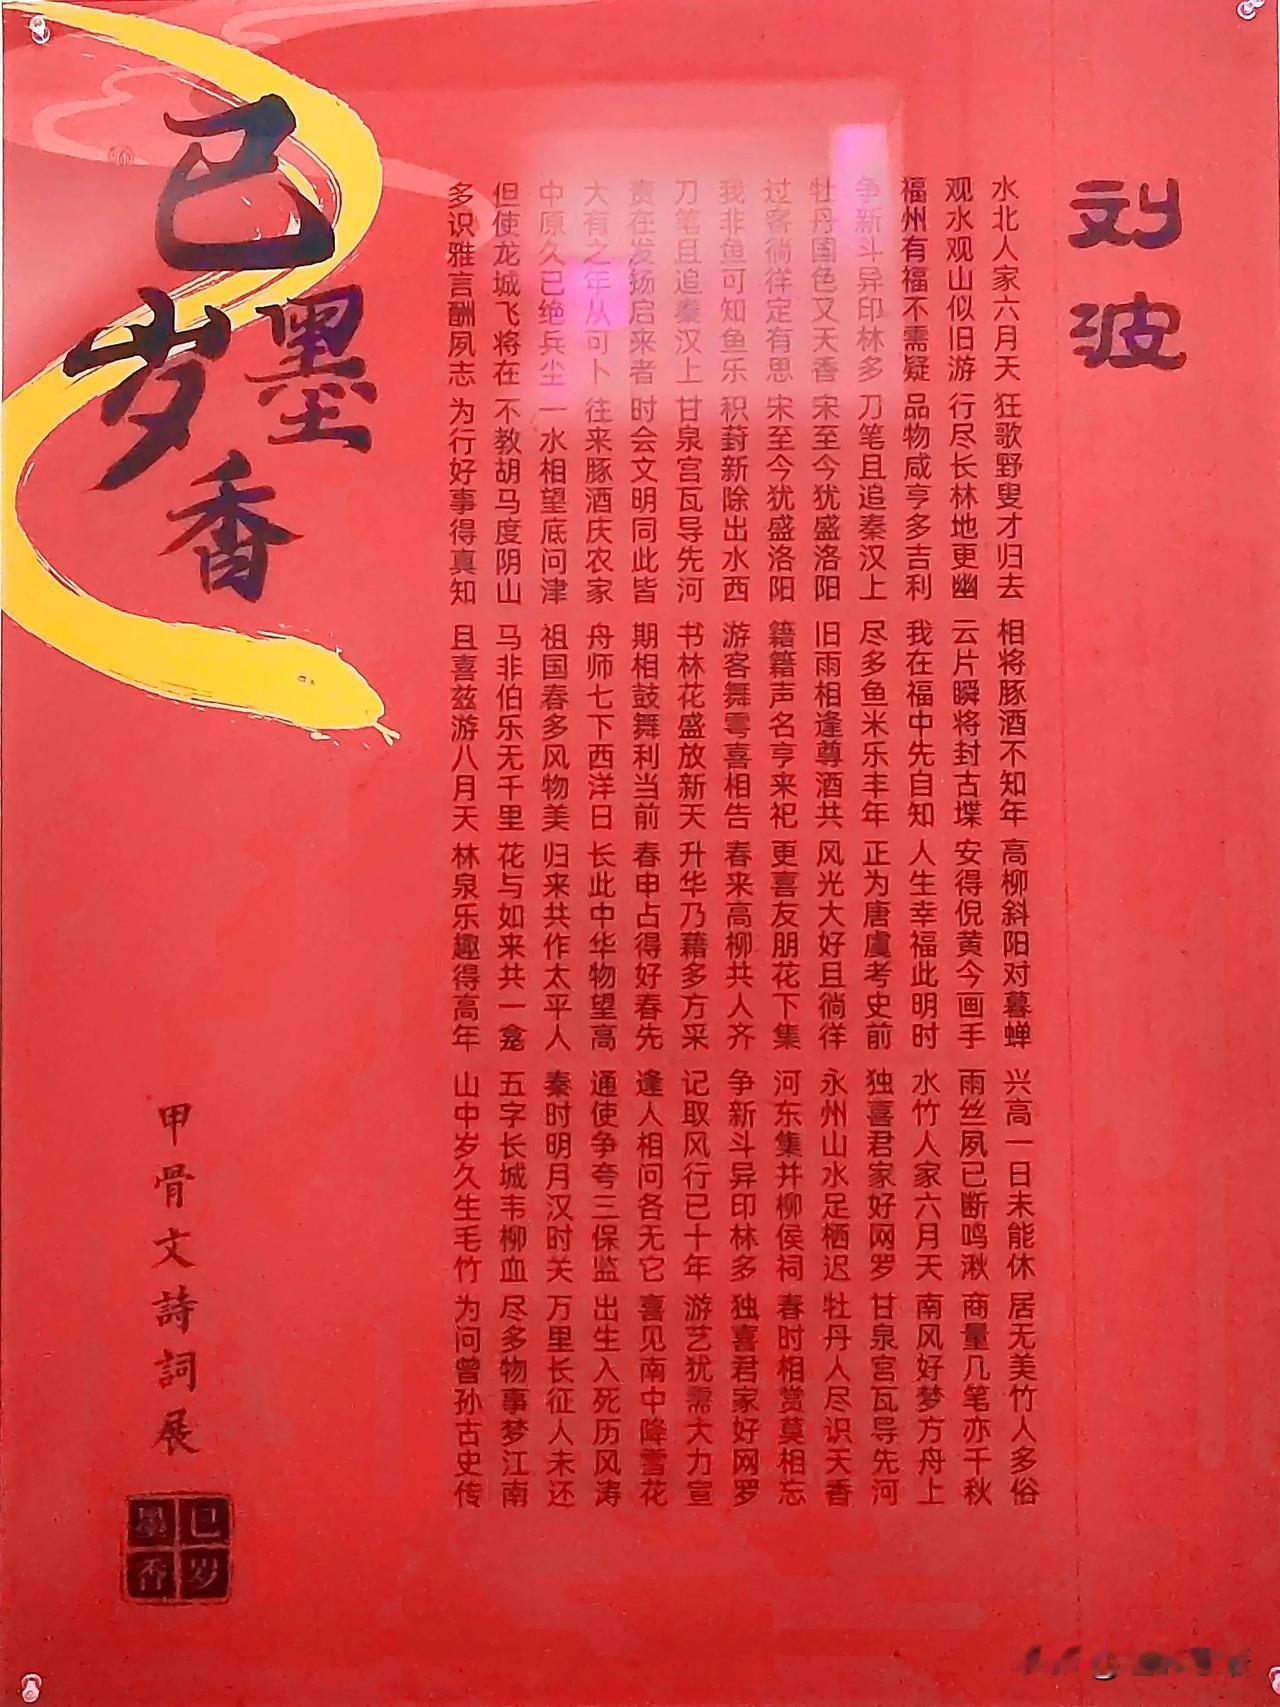 刘波
水北人家六月天 狂歌野叟才归去 相将豚酒不知年 高柳斜阳对暮蝉 兴高一日未能休 居无美竹人多俗
观水观山似旧游 行尽长林地更幽 云片瞬将封古堞 安得倪黄今画手 雨丝夙已断鸣湫 商量几笔亦千秋
福州有福不需疑 品物咸亨多吉利 我在福中先自知 人生幸福此明时 水竹人家六月天 南风好梦方舟上
争新斗异印林多 刀笔且追秦汉上 尽多鱼米乐丰年 正为唐虞考史前 独喜君家好网罗 甘泉宫瓦导先河
牡丹国色又天香 宋至今犹盛洛阳 旧雨相逢尊酒共 风光大好且徜徉 永州山水足栖迟 牡丹人尽识天香
过客徜徉定有思 宋至今犹盛洛阳 籍籍声名亨来祀 更喜友朋花下集 河东集并柳侯祠 春时相赏莫相忘
我非鱼可知鱼乐 积葑新除出水西 游客舞雩喜相告 春来高柳共人齐 争新斗异印林多 独喜君家好网罗
刀笔且追秦汉上 甘泉宫瓦导先河 书林花盛放新天 升华乃藉多方采 记取风行已十年 游艺犹需大力宣
责在发扬启来者 时会文明同此皆 期相鼓舞利当前 春申占得好春先 逢人相问各无它 喜见南中降雪花
大有之年从可卜 往来豚酒庆农家 舟师七下西洋日 长此中华物望高 通使争夸三保监 出生入死历风涛
中原久已绝兵尘 一水相望底问津 祖国春多风物美 归来共作太平人 秦时明月汉时关 万里长征人未还
但使龙城飞将在 不教胡马度阴山 马非伯乐无千里 花与如来共一龛 五字长城韦柳血 尽多物事梦江南
多识雅言酬夙志 为行好事得真知 且喜兹游八月天 林泉乐趣得高年 山中岁久生毛竹 为问曾孙古史传
巳岁墨香
甲骨文詩詞展
巳岁墨香